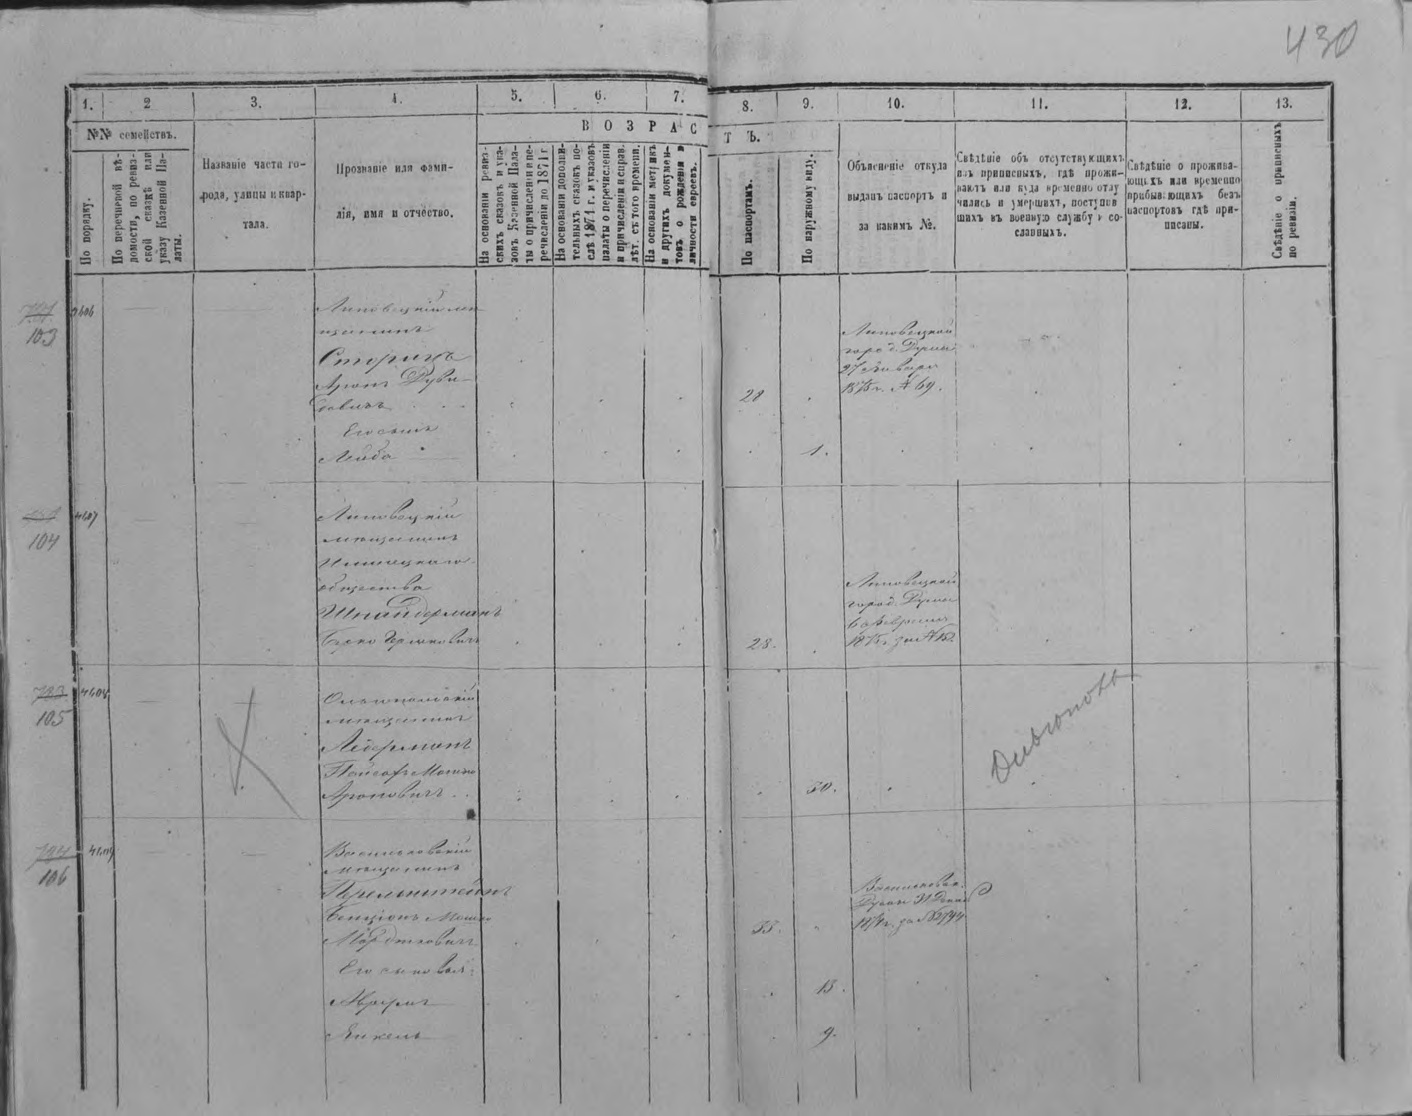 430
1. 2 3. 4. 5. 6. 7. 8. 9. 10. 11. 12. 13.
№№ семействъ.
В О З Р А С Т Ъ.
По порядку.
По перечневой вѣдомости, по ревизской сказкѣ или указу Казенной Палаты.
Названіе части го-
рода, улицы и квар-
тала.
Прозваніе или фами-
лія, имя и отчество.
На основаніи ревиз-
скихъ сказокъ и ука-
зовъ Казенной Пала-
ты о причисленіи и пе-
речисленіи до 1871 г
На основаніи дополни-
тельныхъ сказокъ по-
слѣ 1871 г. и указовъ
палаты о перечисленіи
и причисленіи и справ.
лѣт. съ того времени.
На основаніи метрикъ
и другихъ докумен-
товъ о рожденіи и
личности евреевъ.
По паспортамъ.
По наружному виду.
Объясненіе откуда
выданъ паспортъ и
за какимъ №.
Свѣдѣніе объ отсутствующихъ
изъ приписныхъ, гдѣ прожи-
ваютъ или куда временно отлу
чились и умершихъ, поступив
шихъ въ военную службу и со-
сланныхъ.
Свѣдѣніе о прожива-
ющихъ или временно
прибывающихъ безъ
паспортовъ гдѣ при-
писаны.
Свѣдѣніе о приписныхъ
по ревизіи.
103
4606
Липовецкій мѣ
щанинъ
Аронъ Дуви-
довичъ
28
Липовецкой
город. Думы
27 Января
1875 г. № 69.
Его сынъ
Лейба
1.
104
4607
Липовецкій
мѣщанинъ
общества
Шнайдерманъ
28.
Липовецкой
город. Думы
6 Февраля
1875 г. за №
105
4608
мѣщанинъ
Лидерманъ
Мошко
Ароновичъ
50.
106
4609
Васильковскій
мѣщанинъ
Перельштейнъ
Бенціонъ Мошко
Мордковичъ
55.
Васильков.
Думы 31 Декаб
1874 г. за №
Его сыновья:
Аврумъ
13.
Янкель
9.